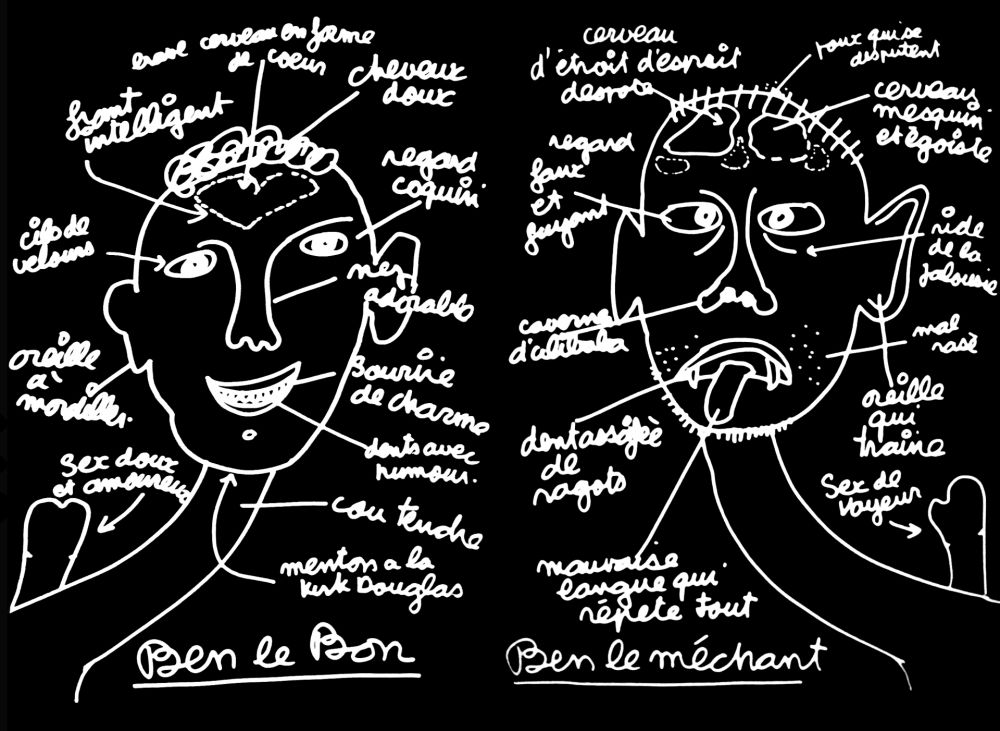 cerveau en forme
de coeur
cheveux
doux
front
intelligent
regard
coquin
cils de
velours
nez
adorable
oreille
à
mordiller.
sourire
de charme
dents avec
humour.
sex doux
et amoureux
cou tendre
menton a la
Kirk Douglas
Ben le Bon
cerveau
d'étroit d'esprit
despote
poux qui se
disputent
cerveau
mesquin
et égoiste
regard
faux
et
fuyant
ride
de la
jalousie
caverne
d'alibaba
mal
rasé
dent assoifée
de
ragots
oreille
qui
traine
sex de
voyeur
mauvaise
langue qui
répète tout
Ben le méchant